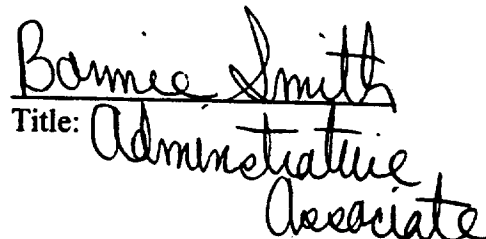 Bonnie Smith
Title: Adminstrative
Associate